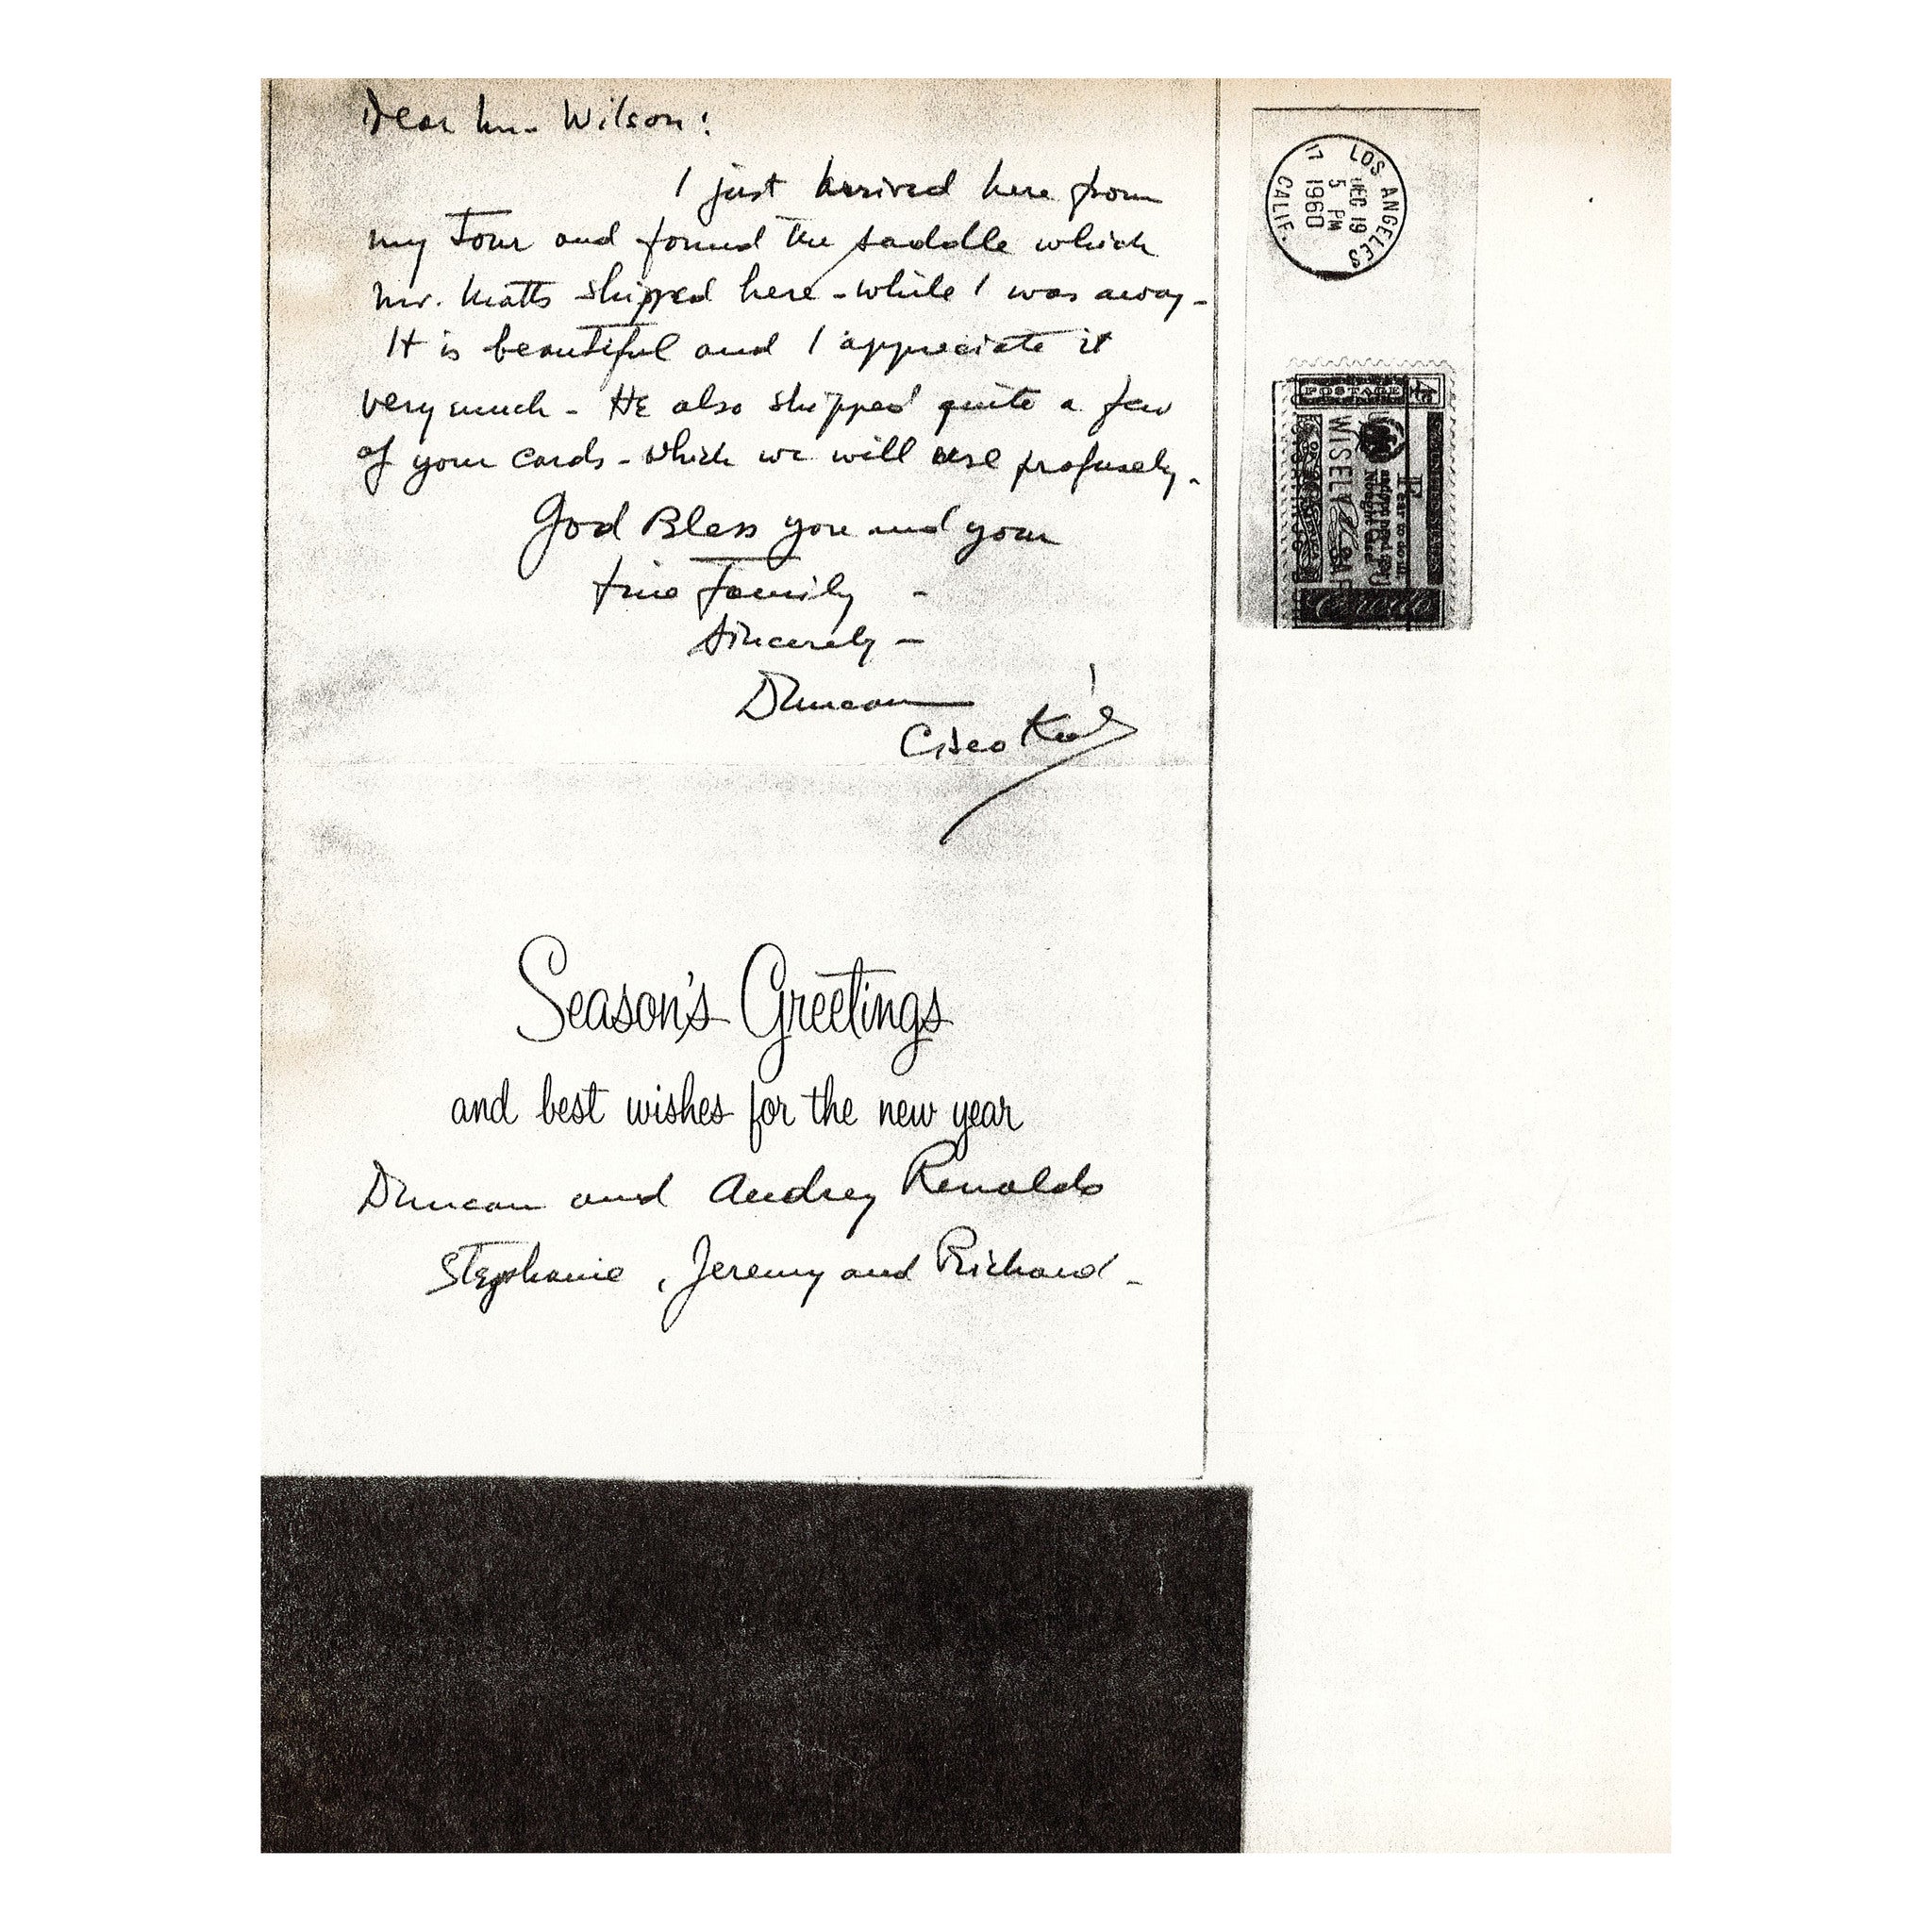 Dear Mr. Wilson:
I just arrived here from
my Tour and found the saddle which
Mr. Watts shipped here - while I was away -
It is beautiful and I appreciate it
very much - HE also shipped quite a few
of your cards - which we will use profusely.
God Bless you and your
fine Family -
Sincerely -
Duncan
Cisco Kid
Season's Greetings
and best wishes for the new year
Duncan and Audrey Renaldo
Stephanie, Jeremy and Richard -
LOS ANGELES
17
CALIF.
DEC 19
5 PM
1960
POSTAGE 4¢
WISELY